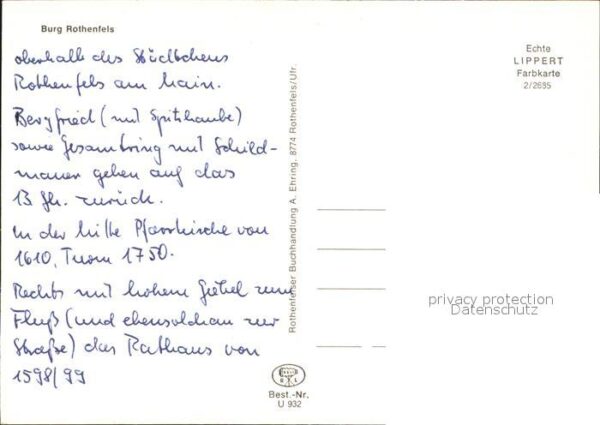 Burg Rothenfels
oberhalb des Städtchens
Rothenfels am Main.
Bergfried (mit Spitzhaube)
sowie Gesamtring mit Schild-
mauer gehen auf das
13 Jh. zurück.
In der Mitte Pfarrkirche von
1610, Turm 1750.
Rechts mit hohem Giebel zum
Fluß (und ebensolchen zur
Straße) das Rathaus von
1598/99
Rothenfelser Buchhandlung A. Ehring, 8774 Rothenfels/Ufr.
Best.-Nr.
U 932
Echte
LIPPERT
Farbkarte
2/2685
privacy protection
Datenschutz